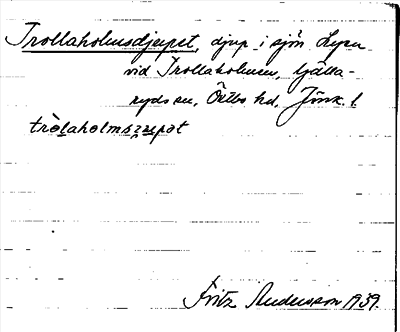 Trollaholmsdjupet, djup i sjön Lyen
vid Trollaholmen, Gälla-
ryds sn, Östbo hd, Jönk. l
Fritz Andersson 1939.